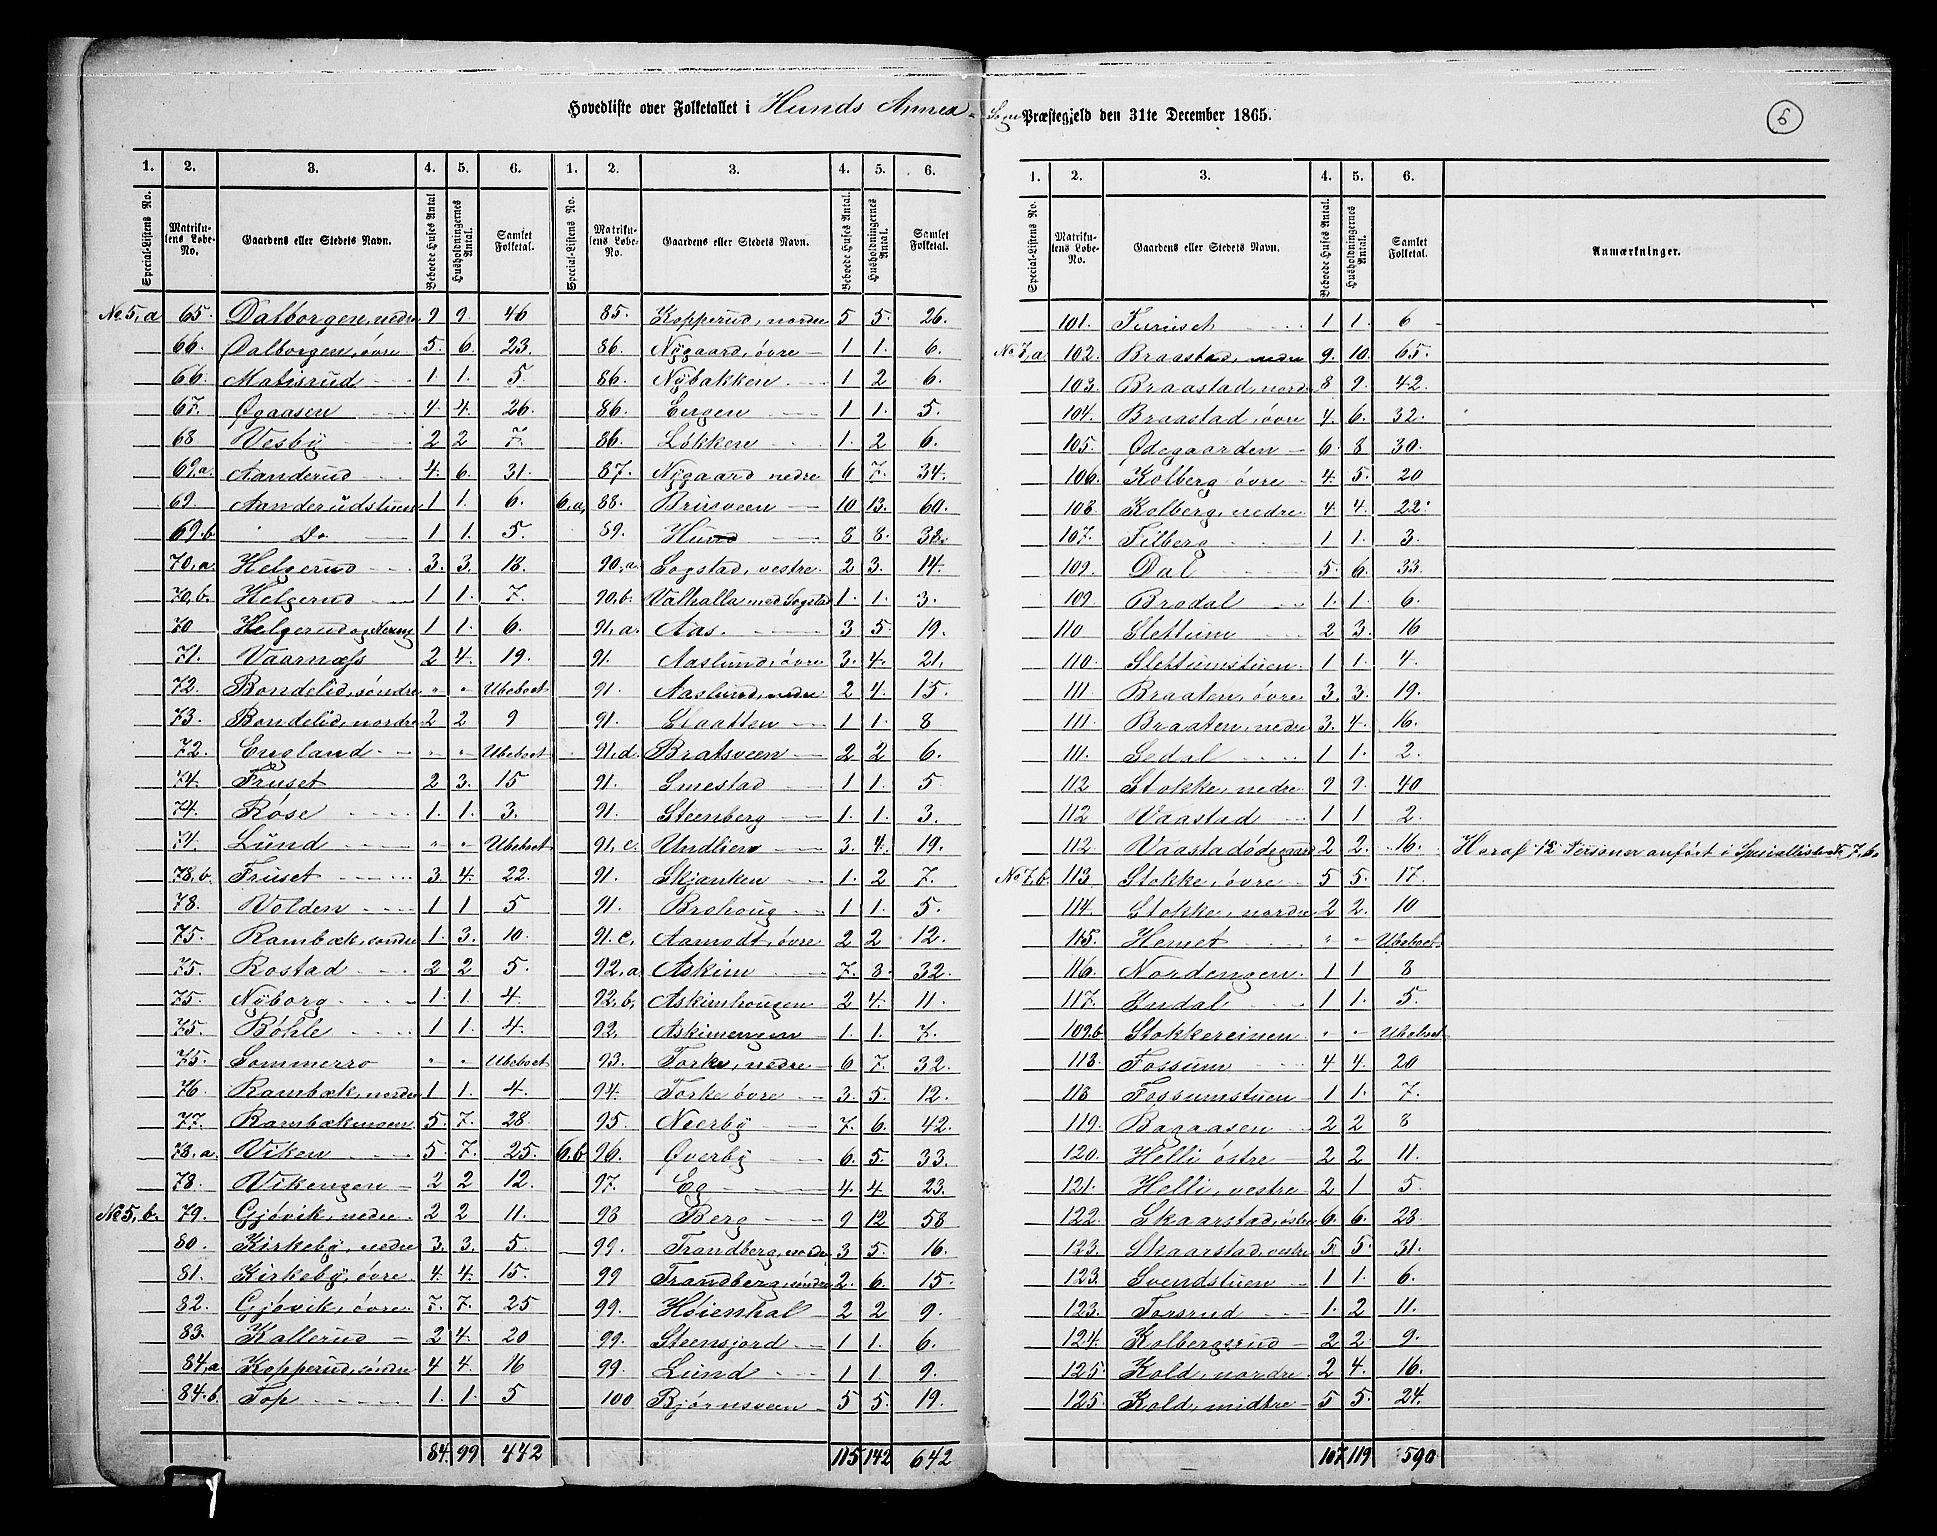 Hovedliste over Folketallet i Hunds Annex- Sogn Præstegjeld den 31te December 1865.
5
1. 2. 3. 4. 5. 6. 1. 2. 3. 4. 5. 6.
Special-Listens No. Matrikulens Løbe-No. Gaardens eller Stedets Navn. Beboede Huses Antal Husholdningernes Antal. Samlet Folketal. Special-Listens No. Matrikulens Løbe-No. Gaardens eller Stedets Navn. Beboede Huses Antal. Husholdningernes Antal. Samlet Folketal.
No 5, a 65. Dalborgen, nedre 9 9 46
66. Dalborgen, övre 5. 6. 23.
66. Matisrud 1. 1. 5.
67. Øgaasen 4. 4. 26.
68 Vesby 2 2 7.
69, a. Aanderud 4. 6. 31.
69. Aanderudstuen 1 1. 6.
69. b. Do 1. 1. 5.
70, a. Helgerud 3. 3. 18.
70, b. Helgerud 1 1. 7.
70 Helgerud og 1 1. 6.
71. Vaarnæss 2 4. 19.
72. Bondelid, söndre " " Ubeboet
73. Bondelid, nordre 2 2 9
72. England " " Ubeboet
74. Fruset 2 3. 15
74. Røse 1. 1. 3.
74. Lund " " Ubeboet
78, b. Fruset 3. 4. 22.
78. Volden 1 1 5
75. Rambæk, søndre 1. 3. 10.
75. Rostad 2 2 5.
75. Nyborg 1. 1. 4.
75. Böhle 1 1. 4.
75. Sommerro " " Ubeboet
76. Rambæk, nordre 1 1. 4.
77. Rambækengen 5. 7. 28.
78, a. Viken 5 7. 25.
78. Vikengen 2 2 12.
No 5, b. 79. Gjövik, nedre 2 2 11.
80. Kirkeby, nedre 3. 3. 5.
81. Kirkeby, övre 4. 4. 15.
82. Gjövik, övre 7. 7. 25
83. Kallerud 3 4. 20
84, a Kopperud, söndre 4 4. 16
84. b. Top 1. 1. 5
84. 99 442
85. Kopperud, nordre 5 5. 26.
86. Nygaard, övre 1 1. 6.
86. Nybakken 1 2 6.
86. Engen 1 1. 5.
86. Lökken 1. 2 6.
87. Nygaard nedre 6 7. 34.
6, a, 88. Brusveen 10 13. 60.
89. Hund 8 8. 38.
90, a. Sogstad, vestre. 2 3. 14.
90, b. Valhalla med Sogstad 1. 1. 3.
91, a. Aas. 3 5. 19.
91. Aaslund, övre 3. 4. 21.
91. Aaslund, nedre 2 4. 15.
91. Staatten 1 1. 8
91, d. Bratsveen 2 2 6.
91. Smestad 1 1. 5
91. Steenberg 1. 1. 3.
91, c. Undlien 3. 4. 19.
91. Skjanken 1. 2 7.
91. Brohoug 1 1. 5.
91. c. Aamodt, övre 2 2 12.
92, a. Askim 7. 8. 32.
92, b, Askimhougen 2 4. 11.
92. Askimengen 1. 1. 7.
93. Torke, nedre 6 7. 32.
94. Torke övre 3. 5. 12.
95. Nierby 7. 6. 42.
6.b. 96. Øverby 6. 5. 33.
97. Eg 4. 4 23.
98 Berg 9 12 58
99. Trandberg, nordre 3 5. 16.
99 Trandberg, söndre 2. 6. 15.
99. Höienhal 2 2 9.
99. Steensjord 1 1. 6.
99. Lund 1 1. 9.
100 Bjørnsveen 5 5. 19.
115 142 642
1. 2. 3. 4. 5. 6.
Special-Listens No. Matrikulens Løbe-No. Gaardens eller Stedets Navn. Beboede Huses Antal. Husholdningernes Antal. Samlet Folketal. Anmærkninger.
101. Furuset 1 1. 6
No 7, a. 102. Braastad, nedre 9. 10. 65.
103. Braastad, nordre 8 9. 42.
104. Braastad, övre 4. 6. 32.
105. Ødegaarden 6. 8 30.
106. Kolberg övre 4. 5. 20
108. Kolberg, nedre 4 4. 22.
107. Filberg 1 1. 3.
109. Dal 5. 6. 33.
109. Brodal 1. 1. 6.
110 Slettum 2 3. 16
110. Slettumstuen 1 1. 4.
111. Braaten, övre 3. 3. 19.
111. Braaten, nedre 3. 4. 16.
111. Sedal 1 1. 2.
112 Stokke, nedre 9 9. 40
112 Vaastad 1 1 2.
112 Vaastadødegaard 2 2. 16. Heraf 12 Personer anført i Speciallisten No 7, b.
No 7, b. 113 Stokke, övre 5 5. 17.
114. Stokke, nordre 2 2. 10
115. Hemet " " Ubeboet
116. Nordengen 1 1 8
117. Endal 1 1. 5.
109.b Stokkereinen " " Ubeboet
118. Fossum 4 4. 20
118 Fossumstuen 1 1. 7.
119. Bagaasen 2 2 8
120. Helli östre 2 2 11.
121. Helli, vestre 2 1 5.
122. Skaarstad, östre 6. 6. 28
123. Skaarstad, vestre 5. 5. 31.
123. Svendstuen 1 1. 6.
123. Torsrud 1. 2 11.
124. Kolbergsrud 2 2 9.
125. Kold, nordre 2 4. 16.
125. Kold, midtre 5 5. 24.
107 119 590